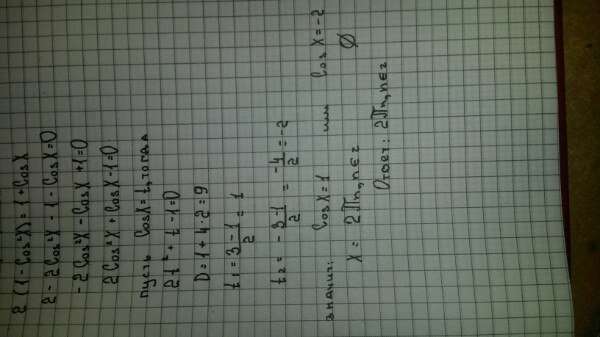 2 (1 - Cos²X) = 1 + CosX
2 - 2Cos²X - 1 - CosX = 0
-2Cos²X - CosX + 1 = 0
2Cos²X + CosX - 1 = 0
пусть CosX = t, тогда
2t² + t - 1 = 0
D = 1 + 4·2 = 9
t₁ = (3 - 1)/2 = 1
t₂ = (-3 - 1)/2 = -4/2 = -2
значит: CosX = 1 или CosX = -2
X = 2Πn, n∈z ∅
Ответ: 2Πn, n∈z